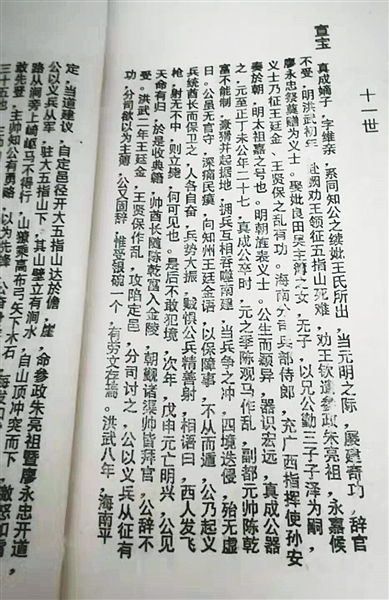 十一世
宣宝 真成嫡子,字维亲,系同知公之续妣王氏所出,当元明之际,屡建奇功,辞官
不受。明洪武初年,赴阙劝王领征五指山死难,劝王钦遣参政朱亮祖,永嘉候
廖永忠祭葬赠为义士。聚妣良田吴主簿之女,无子,以兄公勤三子子泽为嗣,
义士乃征王廷金、王贤保之乱有功。海南分司兵部侍郎,充广西指挥使孙安
奏於朝,明太祖嘉之号也。明朝旌表义士。公生而颖异,器识宏远,真成公器
之。元至正丁未公年二十七,真成公卒时,元之季陈观马作乱,副都元帅陈乾
富不能制,豪猾并起据地,调兵互相吞噬南建,当兵争之冲,四境迭侵,殆无虚
日。公虽无官守,深痛民瘼,向知州王廷金语,以保障事,不从而遁,公乃起义
兵统酋长而保卫之,人各自奋,兵势大振,贼惧公兵精善射,相语曰,西人发飞
枪,射无不中,则立毙,何可见也。是后不敢犯境,次年,戊申元亡明兴,公见
天命有归,於是收典籍,帅酋长随陈乾富入金陵,朝觐诸渠帅皆拜官,公辞不
受。洪武二年王廷金、王贤保作乱,攻陷定邑,分司讨之,公以义兵从征有
功,分司欲以为主薄,公又固辞,惟受银碗一个,有劳文存藁。洪武八年,海南平
定,当道建议,自定邑径开大五指山达於儋,崖,命参政朱亮祖暨廖永忠开道
公以义兵从军,驻大五指山下,其山壁立有涧水,自山顶冲突而下,
路从涧旁上崎岖马不得行,山獠乘高布弓矢下木石,
敢先登,主帅知公有勇略,以为先锋,公奋身
三十五也。